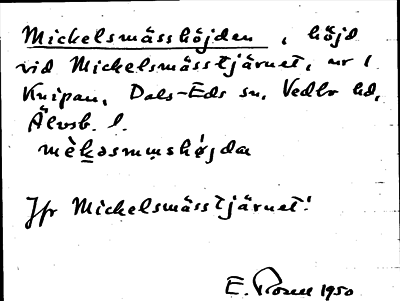 Mickelsmässhöjden, höjd
vid Mickelsmässtjärnet, nr 1
Knipan, Dals-Eds sn, Vedbo hd,
Älvsb. l.
Jfr Mickelsmässtjärnet!
E. 1950